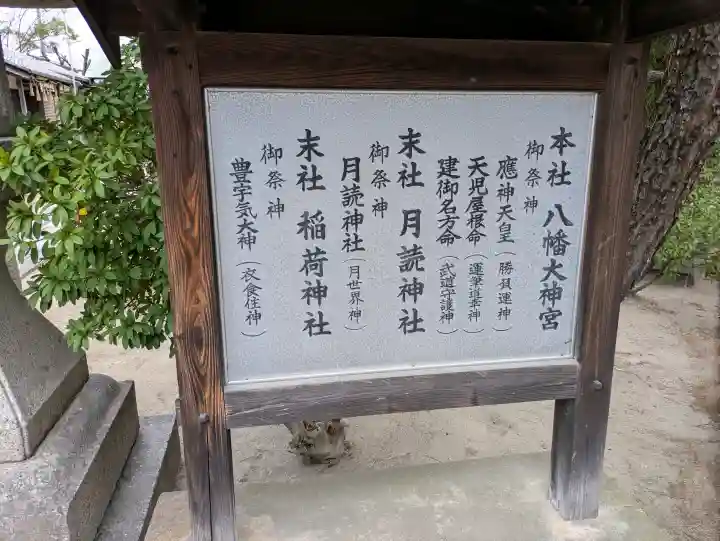 本社 八幡大神宮
御祭神
應神天皇(勝負運神)
天児屋根命(運筆道楽神)
建御名方命(武道守護神)
末社 月読神社
御祭神
月読神社(月世界神)
末社 稲荷神社
御祭神
豊宇気大神(衣食住神)